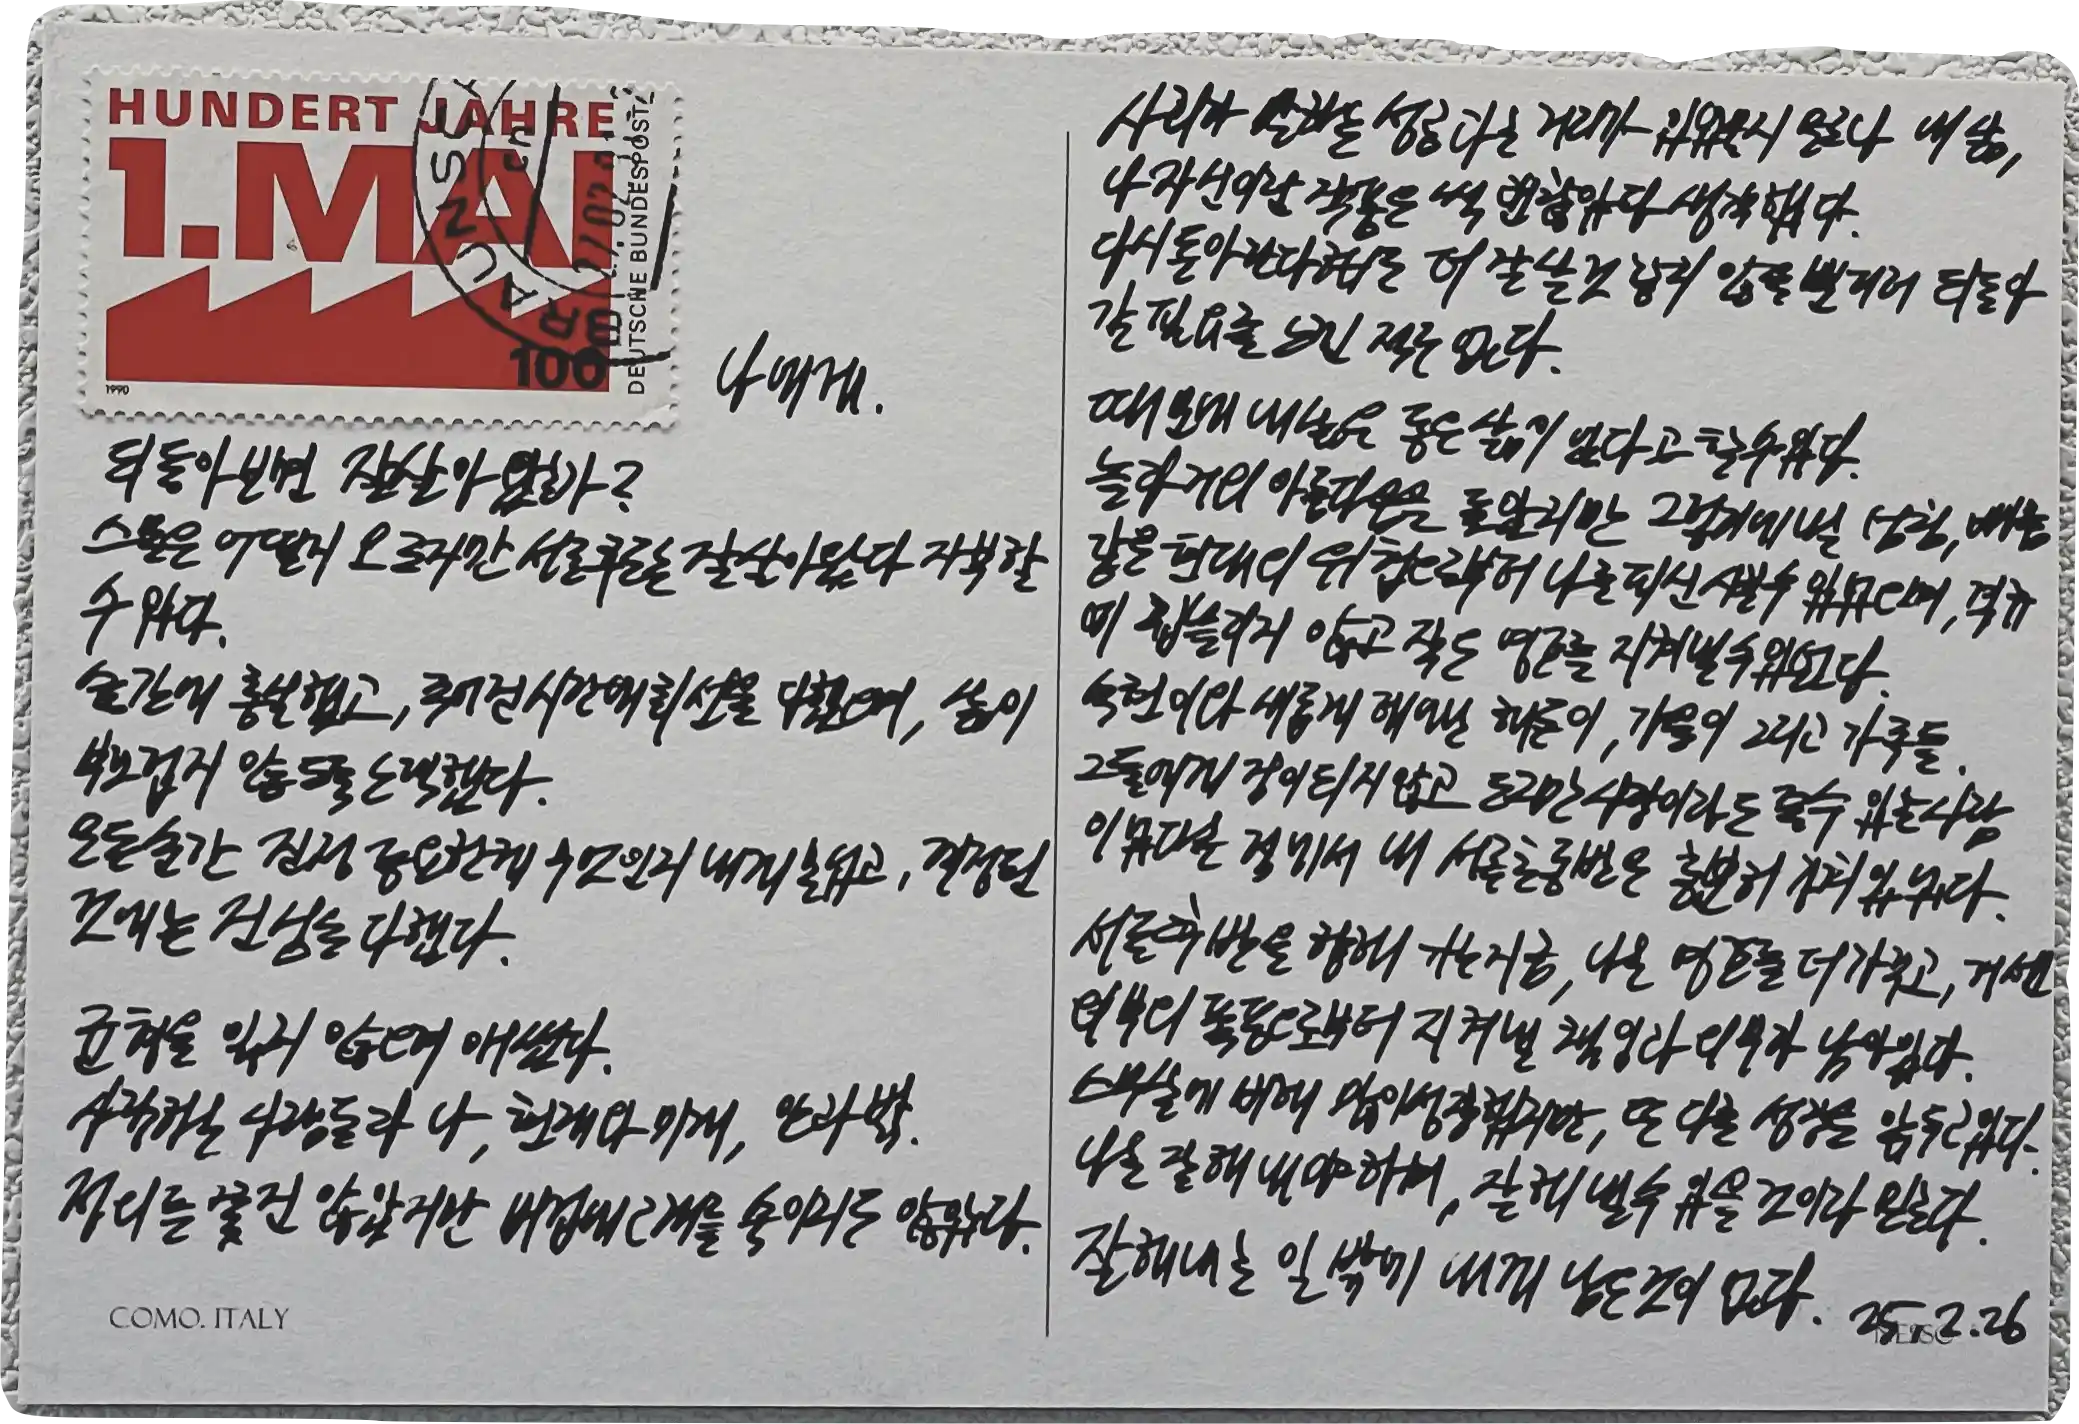 HUNDERT JAHRE
1.MAI
100
1990
DEUTSCHE BUNDESPOST
BRAUNSC
나에게.
뒤돌아보면 잘 살아왔을까?
스물은 어땠는지 모르지만 서른 후론 잘 살아왔다 자부할
수 있다.
순간에 충실했고, 주어진 시간에 최선을 다했으며, 삶이
부끄럽지 않도록 노력했다.
모든 순간 진정 중요한게 무엇인지 내게 물었고, 결정된
것에는 진심을 다했다.
균형을 잃지 않으며 애썼다.
사랑하는 사람들과 나, 현재와 미래, 안과 밖.
정의롭진 않았지만 비겁하게 고개를 숙이지는 않았다.
사회가 말하는 성공과는 거리가 있을런지 몰라도 내 삶,
나 자신이란 작품은 썩 괜찮았다 생각했다.
다시 돌아간다해도 더 잘 살 것 같지 않을 뿐더러 되돌아
갈 필요를 느낀 적도 없다.
때문에 내 삶은 좋은 삶이었다고 할 수 있다.
늘 그림의 아름다움은 모를지만 그렇게 해낸 성취, 배움
같은 현대의 위협으로부터 나를 피신시킬 수 있었으며,
휩쓸리지 않고 작은 영혼를 지켜낼 수 있었다.
숙현이와 새롭게 태어난 해준이, 가을이 그리고 가족들.
그들에게 짐이 되지 않고 도리만 사랑이라도 줄 수 있는 사람
이 었다는 점에서 내 서른 초중반은 충분히 가치 있었다.
서른 후반을 향해 가는 지금, 나는 영혼을 더 가꾸고, 거센
외부의 폭풍으로부터 지켜낼 책임과 의무가 남아있다.
스무살에 비해 많이 성장했지만, 또 다른 성장을 앞두고 있다.
나는 잘 해내야하며, 잘 해낼 수 있을 것이라 믿는다.
잘 해내는 일 밖에 내게 남은 것이 없다. 25.2.26
COMO. ITALY